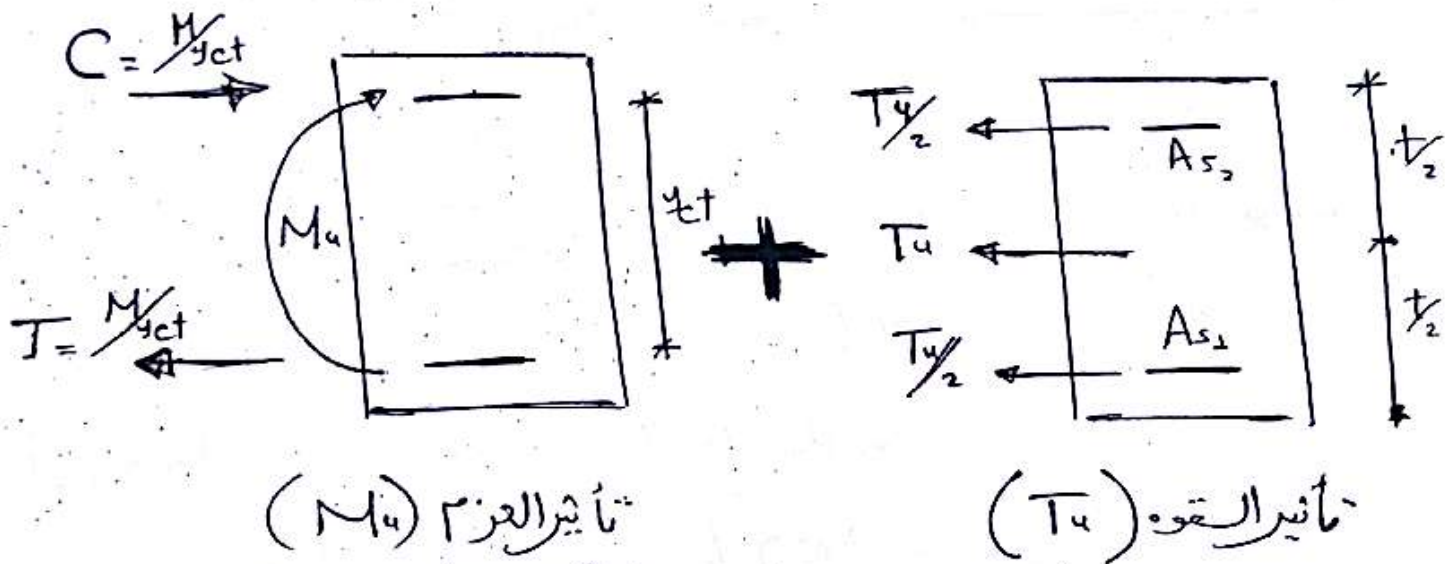 C = M/yct
Mu
yct
T = M/yct
+
Tu/2
As2
Tu
Tu/2
As1
t/2
t/2
تأثير العزم (Mu)
تأثير القوه (Tu)